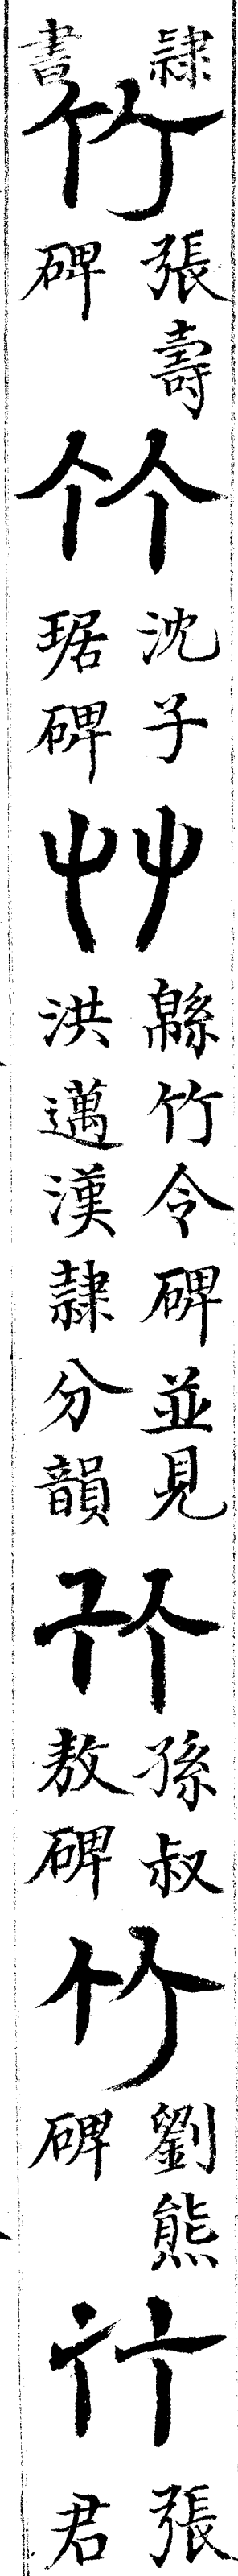 隸書
竹
張壽碑
竹
沈子琚碑
竹
緜竹令碑並見洪邁漢隸分韻
竹
孫叔敖碑
竹
劉熊碑
竹
張君